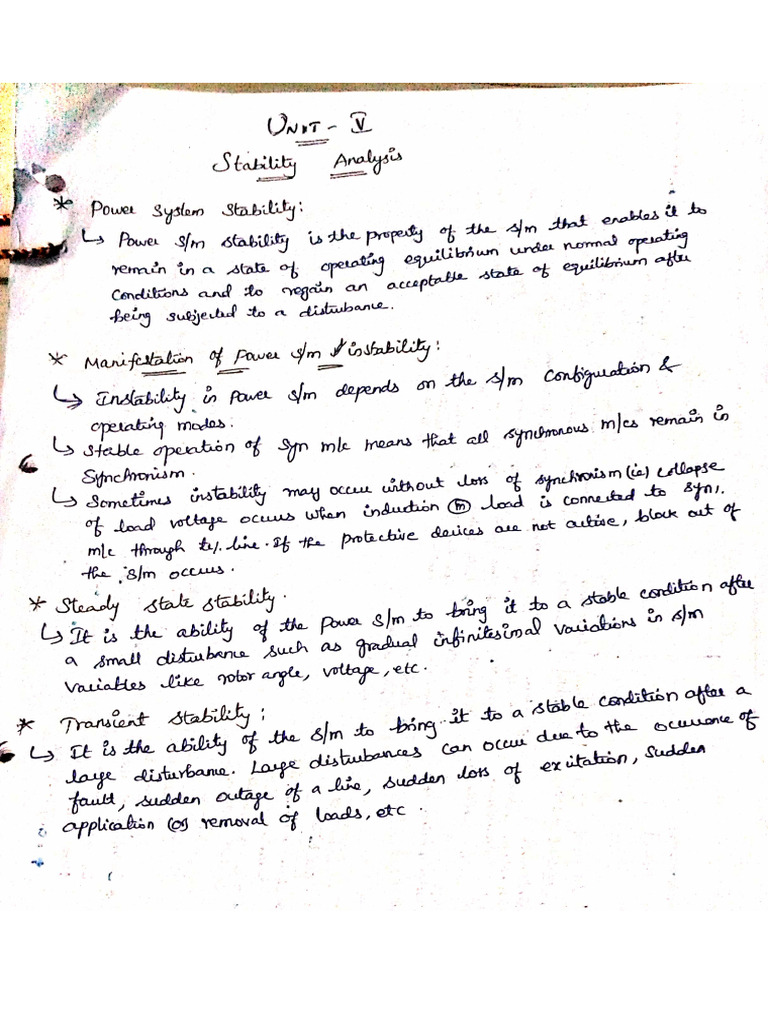 UNIT - V
Stability Analysis
* Power System Stability:
↳ Power S/m stability is the property of the s/m that enables it to
remain in a state of operating equilibrium under normal operating
Conditions and to regain an acceptable state of equilibrium after
being subjected to a disturbance.
* Manifestation of Power s/m instability:
↳ Instability in Power s/m depends on the s/m configuration &
operating modes.
↳ Stable operation of Syn m/c means that all synchronous m/cs remain in
Synchronism.
↳ Sometimes instability may occur without loss of synchronism (ie) collapse
of load voltage occurs when induction (m) load is connected to syn.
m/c through line. If the protective devices are not active, block out of
the s/m occurs.
* Steady state stability.
↳ It is the ability of the power s/m to bring it to a stable condition after
a small disturbance such as gradual infinitesimal variations in s/m
variables like rotor angle, voltage, etc.
* Transient Stability:
↳ It is the ability of the s/m to bring it to a stable condition after a
large disturbance. Large disturbances can occur due to the occurence of
fault, sudden outage of a line, sudden loss of excitation, sudden
application (or) removal of loads, etc.